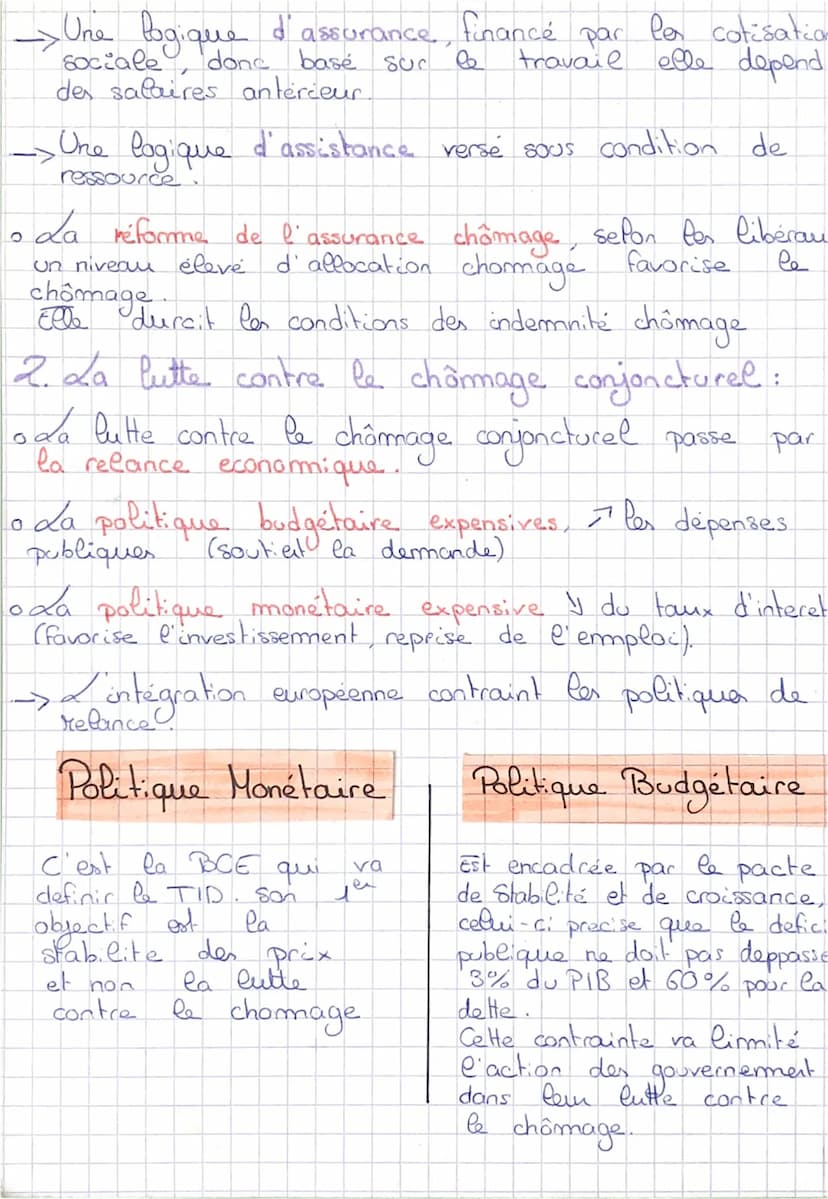 → Une logique d'assurance, financé par les cotisation
sociale, donc basé sur le travaile elle depend
des salaires antérieur.
→ Une logique d'assistance versé sous condition de
ressource.
o La réforme de l'assurance chômage, selon les libérau
un niveau élevé d'allocation chomage favorise le
chômage.
Elle durcit les conditions des indemnité chômage
2. La lutte contre le chômage conjoncturel :
o La lutte contre le chômage conjoncturel passe par
la relance economique.
o La politique budgétaire expensives, ↗ les dépenses
publiques (soutient la demande)
o La politique monétaire expensive ↘ du taux d'interet
(favorise l'investissement, reprise de l'emploi).
→ L'intégration européenne contraint les politiques de
relance.
Politique Monétaire
C'est la BCE qui va
definir le TID. son 1er
objectif est la
stabilite des prix
et non la lutte
contre le chomage
Politique Budgétaire
Est encadrée par le pacte
de Stabilité et de croissance,
celui-ci precise que le defici
publique ne doit pas deppasse
3% du PIB et 60% pour la
dette.
Cette contrainte va limité
l'action des gouvernement
dans leur lutte contre
le chômage.